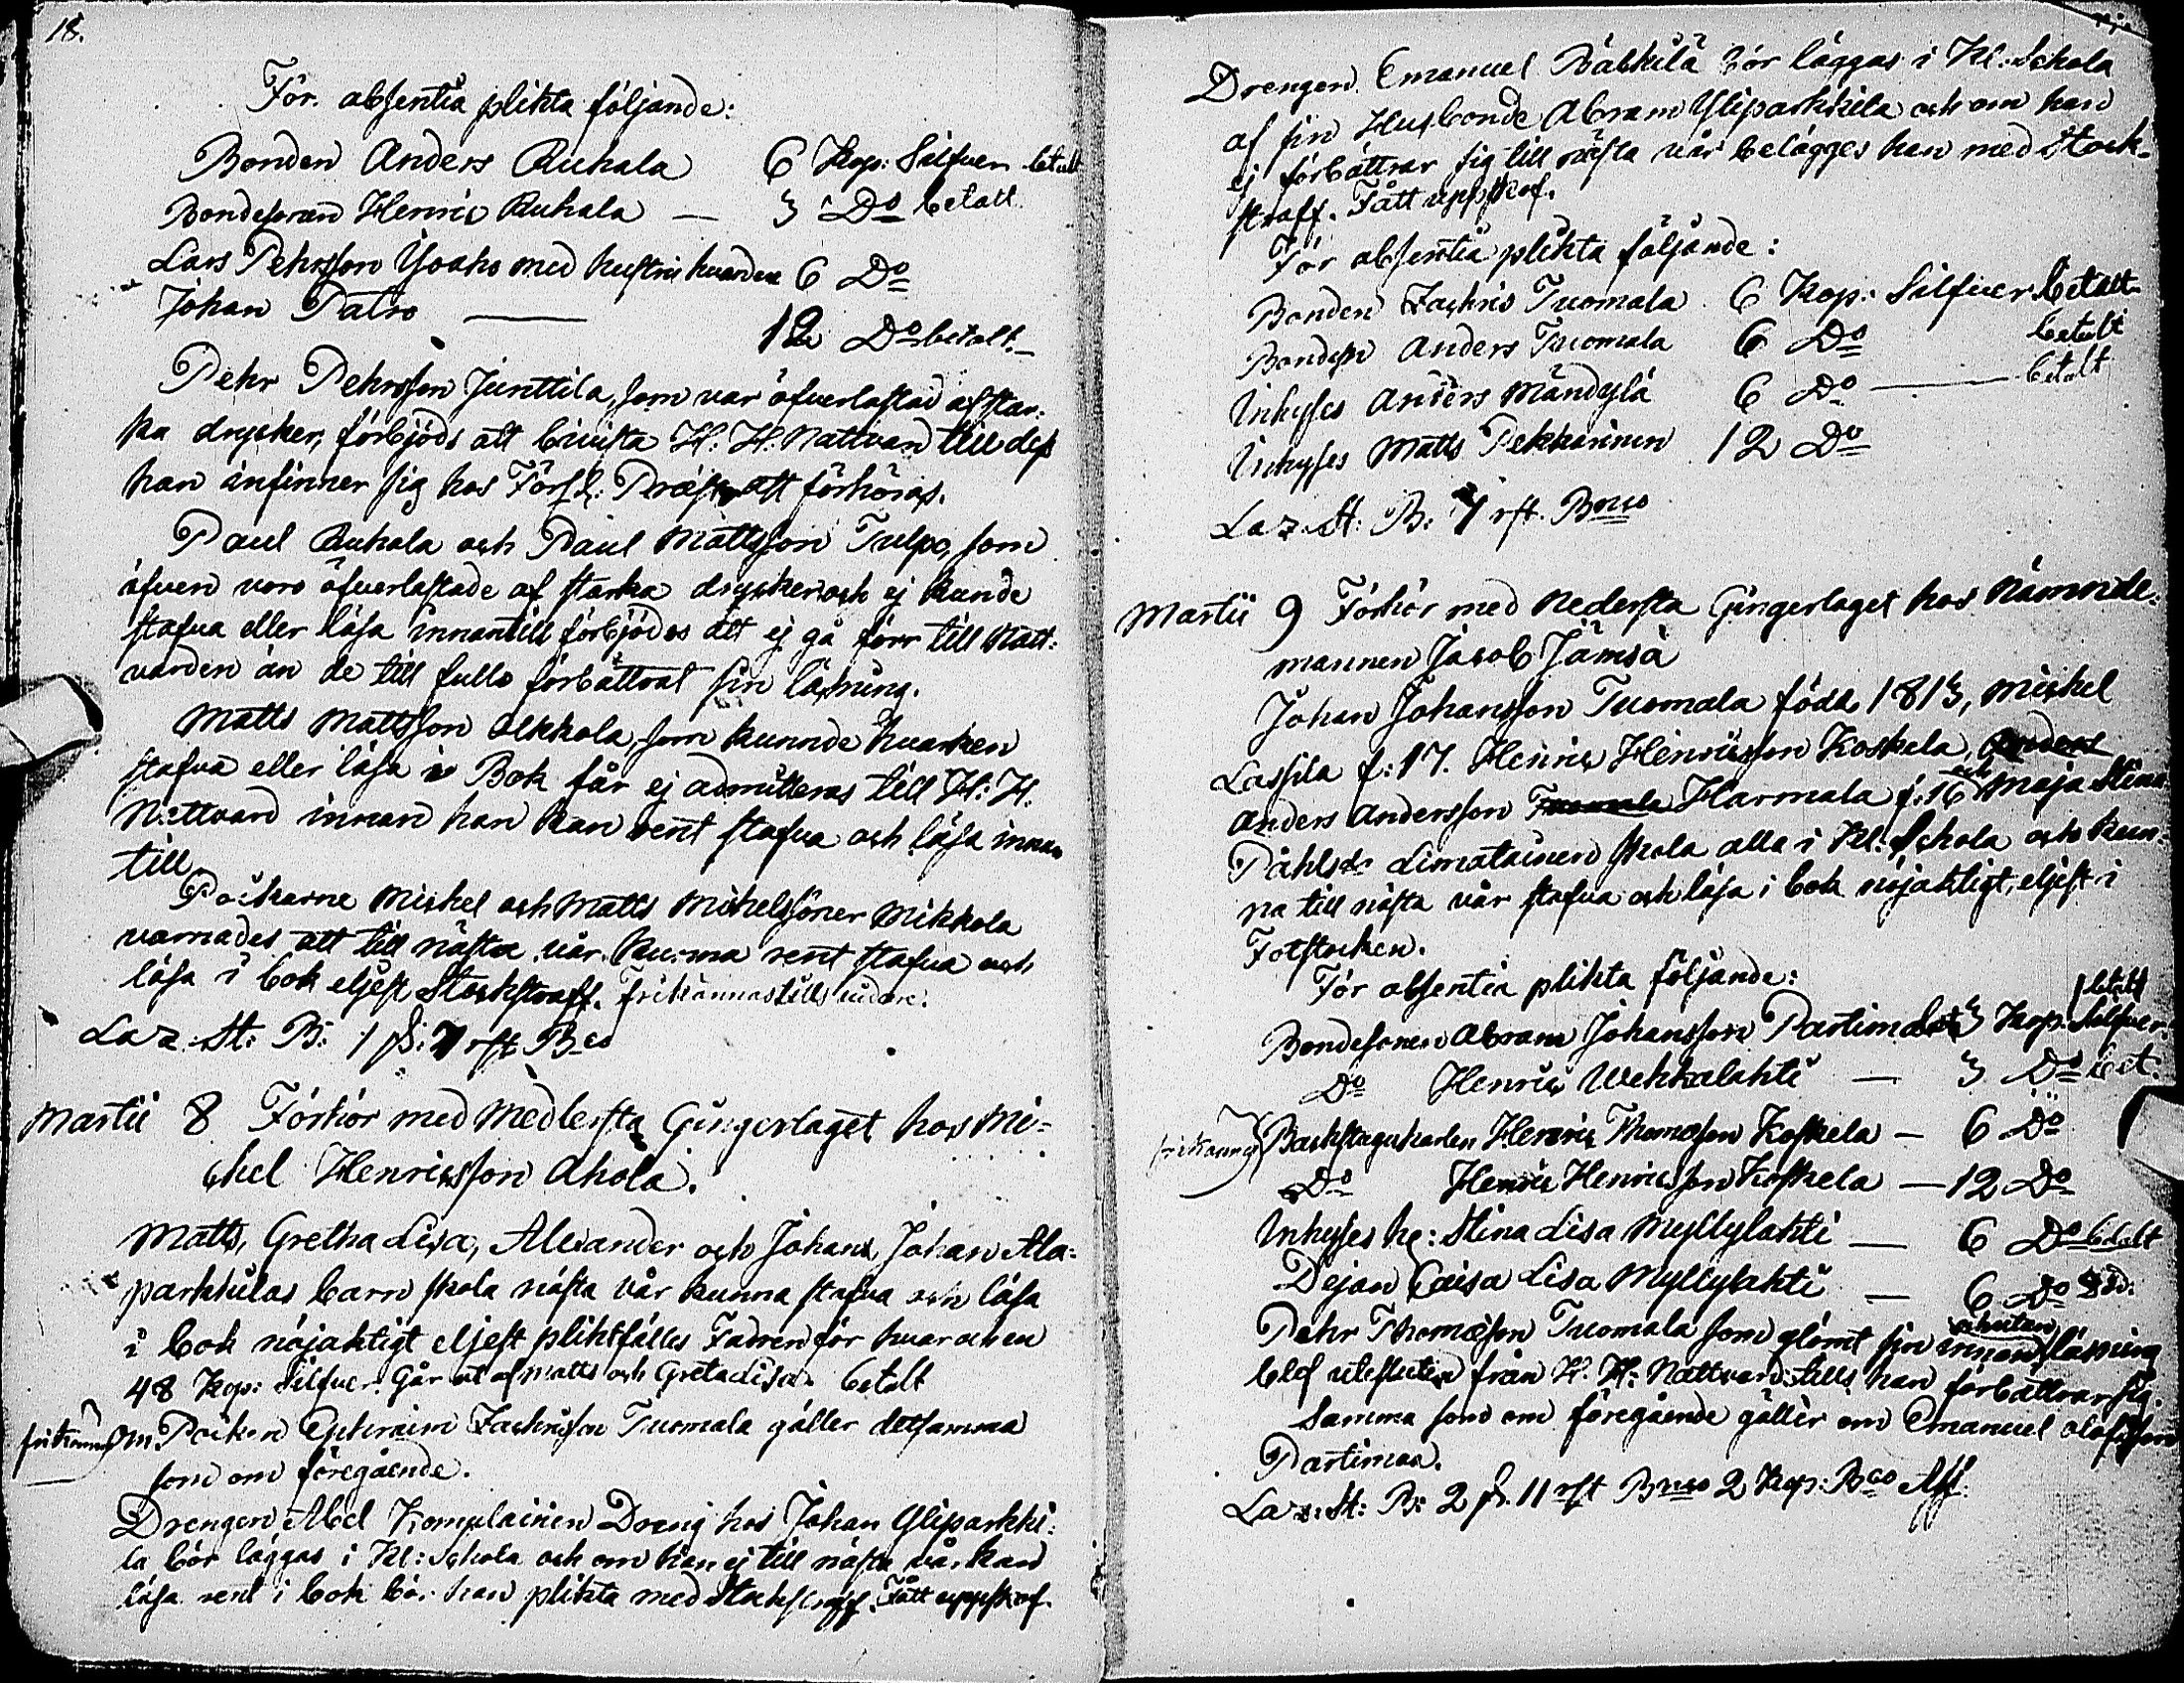 18.
För absentia plikta följande:
Bonden Anders Ruhala 6 Kop: Silfver betalt
Bondesonen Henric Ruhala — 3 Do betalt.
Lars Pehrsson Yoaho med hustru hvardera 6 Do
Johan Patro — 12 Do betalt.
Pehr Pehrsson Junttila, som var öfverlastad af star-
ka drycker, förbjöds att bivista H. H. Nattvard till dess
han infinner sig hos Förs: Præst, att förhöras.
Paul Ruhala och Paul Mattsson Tulpo, som
äfven voro öfverlastade af starka drycker och ej kunde
stafva eller läsa innantill förbjödos att ej gå förr till Natt-
varden än de till fullo förbättrat sin läsning.
Matts Mattsson Alkkola, som kunnde hvarken
stafva eller läsa i Bok får ej admitteras till H: H.
Nattvard innan han kan rent stafva och läsa innan
till
Poikarne Mickel och Matts Mickelssöner Mikkola
varnades att till nästa vår kunna rent stafva och
läsa i bok eljest Stockstraff. Frikännas tills vidare.
Laz. St: B: 1 ß: 7 rst. Bco
Martii 8 Förhör med Medlersta Gingerlaget hos Mi-
chel Henricsson Ahola.
Matts, Gretha Lisa, Alexander och Johan, Johan Ala-
parkkilas barn skola nästa vår kunna stafva och läsa
i bok nöjaktigt eljest pliktfälles Fadren för hvar och en
48 Kop: Silfver. Går ut af Matts och Greta Lisa. betalt
frikännas Om Poiken Ephraim Zachrisson Tuomala gäller detsamma
som om föregående.
Drengen Abel Komulainen Dreng hos Johan Yliparkki-
la bör läggas i Kl: Schola och om han ej till nästa vår kan
läsa rent i bok bör han plikta med Stockstraff. Fått uppskof.
Drengen Emanuel Räbkilä bör läggas i Kl: Schola
af sin Husbonde Abram Yliparkkila och om han
ej förbättrar sig till nästa vår belägges han med Stock-
straff. Fått uppskof.
För absentia plikta följande:
Bonden Zachris Tuomala 6 Kop: Silfver betalt
Bondesn Anders Tuomala 6 Do betalt
Inhyses Anders Mändylä 6 Do — betalt
Inhyses Matts Pekkarinen 12 Do
Laz. St: B: 7 rst. Bnco
Martii 9 Förhör med Nedersta Gingerlaget hos Nämnde-
mannen Jacob Jämsä
Johan Johansson Tuomala född 1813, Mickel
Lassila f: 17. Henric Henricsson Koskela, Anders
Anders Andersson Tuomala Harmala f: 16 och Maja Stina
Påhlsdr Limatainen skola alla i Kl: Schola och kun-
na till nästa vår stafva och läsa i bok nöjaktigt, eljest i
Fotstocken.
För absentia plikta följande:
Bondesonen Abram Johansson Partimaa 3 Kop: Silfver betalt
Do Henric Wehkalahti — 3 Do bet.
frikännes Backstugukarlen Henric Thomasson Koskela — 6 Do
Do Henric Henricsson Koskela — 12 Do
Inhyses hu: Stina Lisa Myllylahti — 6 Do betalt
Dejan Caisa Lisa Myllylahti — 6 Do
Pehr Thomasson Tuomala som glömt sin innan och utan läsning
blef utesluten från H. H: Nattvard: tills han förbättrar sig.
Samma som om föregående gäller om Emanuel Olofsson
Partimaa.
Laz: St: B: 2 ß. 11 rst Bnco 2 Kop: Bco Ass.